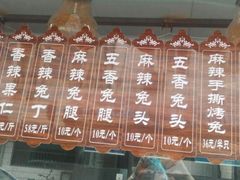 香辣果仁
元/斤
香辣兔丁
58元/斤
麻辣兔腿
10元/个
五香兔腿
10元/个
麻辣兔头
10元/个
五香兔头
10元/个
麻辣手撕烤兔
36元/半只